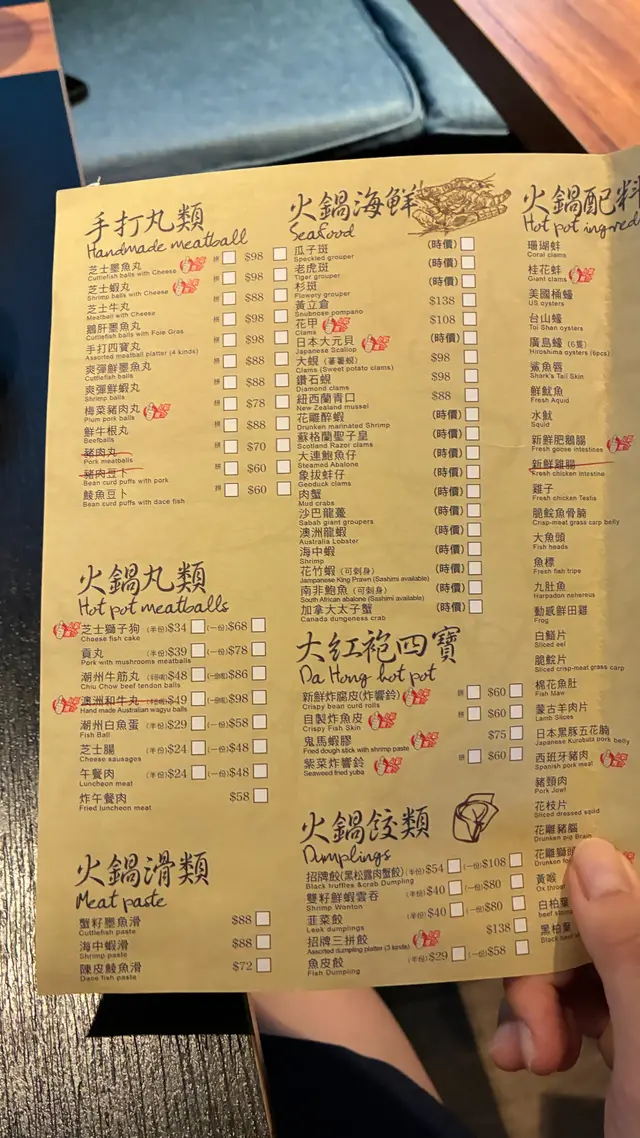 手打丸類
Handmade meatball
芝士墨魚丸 拼 $98
Cuttlefish balls with Cheese
芝士蝦丸 拼 $98
Shrimp balls with Cheese
芝士牛丸 拼 $88
Meatball with Cheese
鵝肝墨魚丸 拼 $98
Cuttlefish balls with Foie Gras
手打四寶丸 拼 $98
Assorted meatball platter (4 kinds)
爽彈鮮墨魚丸 拼 $88
Cuttlefish balls
爽彈鮮蝦丸 拼 $88
Shrimp balls
梅菜豬肉丸 拼 $78
Plum pork balls
鮮牛根丸 拼 $88
Beefballs
豬肉丸 拼 $70
Pork meatballs
豬肉豆卜 拼 $60
Bean curd puffs with pork
鯪魚豆卜 拼 $60
Bean curd puffs with dace fish
火鍋丸類
Hot pot meatballs
芝士獅子狗 (半份)$34 (一份)$68
Cheese fish cake
貢丸 (半份)$39 (一份)$78
Pork with mushrooms meatballs
潮州牛筋丸 $48 $86
Chiu Chow beef tendon balls
澳洲和牛丸 $49 $98
Hand made Australian wagyu balls
潮州白魚蛋 (半份)$29 (一份)$58
Fish Ball
芝士腸 (半份)$24 (一份)$48
Cheese sausages
午餐肉 (半份)$24 (一份)$48
Luncheon meat
炸午餐肉 $58
Fried luncheon meat
火鍋滑類
Meat paste
蟹籽墨魚滑 $88
Cuttlefish paste
海中蝦滑 $88
Shrimp paste
陳皮鯪魚滑 $72
Dace fish paste
火鍋海鮮
Seafood
瓜子斑 (時價)
Speckled grouper
老虎斑 (時價)
Tiger grouper
杉斑 (時價)
Flowery grouper
黃立倉 $138
Snubnose pompano
花甲 $108
Clams
日本大元貝 (時價)
Japanese Scallop
大蜆 (蕃薯蜆) $98
Clams (Sweet potato clams)
鑽石蜆 $98
Diamond clams
紐西蘭青口 $88
New Zealand mussel
花雕醉蝦 (時價)
Drunken marinated Shrimp
蘇格蘭聖子皇 (時價)
Scotland Razor clams
大連鮑魚仔 (時價)
Steamed Abalone
象拔蚌仔 (時價)
Geoduck clams
肉蟹 (時價)
Mud crabs
沙巴龍躉 (時價)
Sabah giant groupers
澳洲龍蝦 (時價)
Australia Lobster
海中蝦 (時價)
Shrimp
花竹蝦 (可刺身) (時價)
Jampanese King Prawn (Sashimi available)
南非鮑魚 (可刺身) (時價)
South African abalone (Sashimi available)
加拿大太子蟹 (時價)
Canada dungeness crab
大紅袍四寶
Da Hong hot pot
新鮮炸腐皮(炸響鈴) 拼 $60
Crispy bean curd rolls
自製炸魚皮 拼 $60
Crispy Fish Skin
鬼馬蝦膠 $75
Fried dough stick with shrimp paste
紫菜炸響鈴 拼 $60
Seaweed fried yuba
火鍋餃類
Dumplings
招牌餃(黑松露肉蟹餃) (半份)$54 (一份)$108
Black truffles &crab Dumpling
雙籽鮮蝦雲吞 (半份)$40 (一份)$80
Shrimp Wonton
韮菜餃 (半份)$40 (一份)$80
Leek dumplings
招牌三拼餃 $138
Assorted dumpling platter (3 kinds)
魚皮餃 (半份)$29 (一份)$58
Fish Dumpling
火鍋配料
Hot pot ingred
珊瑚蚌
Coral clams
桂花蚌
Giant clams
美國桶蠔
US oysters
台山蠔
Tai Shan oysters
廣島蠔 (6隻)
Hiroshima oysters (6pcs)
鯊魚唇
Shark's Tail Skin
鮮魷魚
Fresh Aquid
水魷
Squid
新鮮肥鵝腸
Fresh goose intestines
新鮮雞腸
Fresh chicken intestine
雞子
Fresh chicken Testis
脆鯇魚骨腩
Crisp-meat grass carp belly
大魚頭
Fish heads
魚標
Fresh fish tripe
九肚魚
Harpadon nehereus
動感鮮田雞
Frog
白鱔片
Sliced eel
脆鯇片
Sliced crisp-meat grass carp
棉花魚肚
Fish Maw
蒙古羊肉片
Lamb Slices
日本黑豚五花腩
Japanese Kurobuta pork belly
西班牙豬肉
Spanish pork meat
豬頸肉
Pork Jowl
花枝片
Sliced dressed squid
花雕豬腦
Drunken pig Brain
花雕獅頭
Drunken
黃喉
Ox throat
白柏葉
beef
黑柏
Black beef